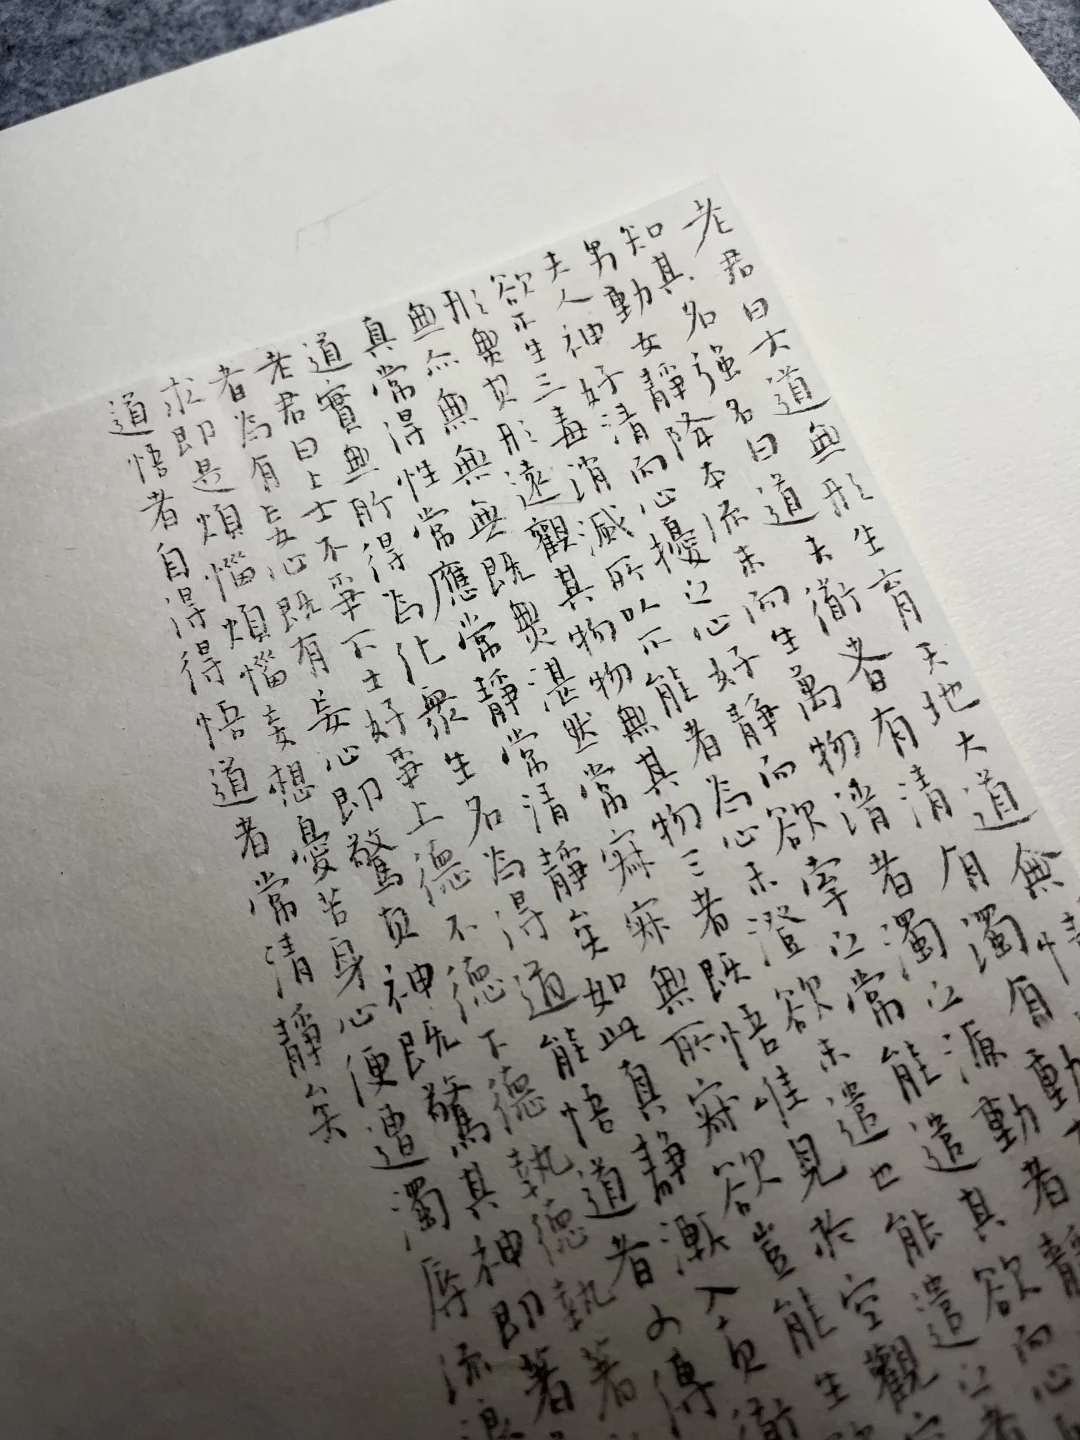 老君曰大道無形生育天地大道無情
知其名強名曰道夫衜者有清有濁有動
男動女靜降本流末而生萬物清者濁之源動者靜
夫人神好清而心擾之心好靜而欲牽之常能遣其欲而心
欲不生三毒消滅所以不能者為心未澄欲未遣也能遣之者
形無其形遠觀其物物無其物三者既悟唯見於空觀空
無亦無無無無既無湛然常寂寂無所寂欲豈能生
真常得性常應常靜常清靜矣如此真靜漸入真衜
道實無所得為化眾生名為得道能悟道者可傳
老君曰上士不爭下士好爭上德不德下德執德執著
者為有妄心既有妄心即驚其神既驚其神即著
求即是煩惱煩惱妄想憂苦身心便遭濁辱流浪
道悟者自得得悟道者常清靜矣